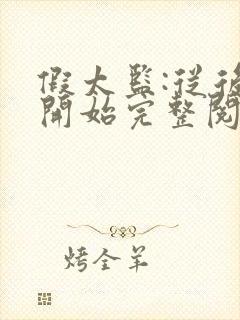 假太監:從後
開始完整閱
烤全羊